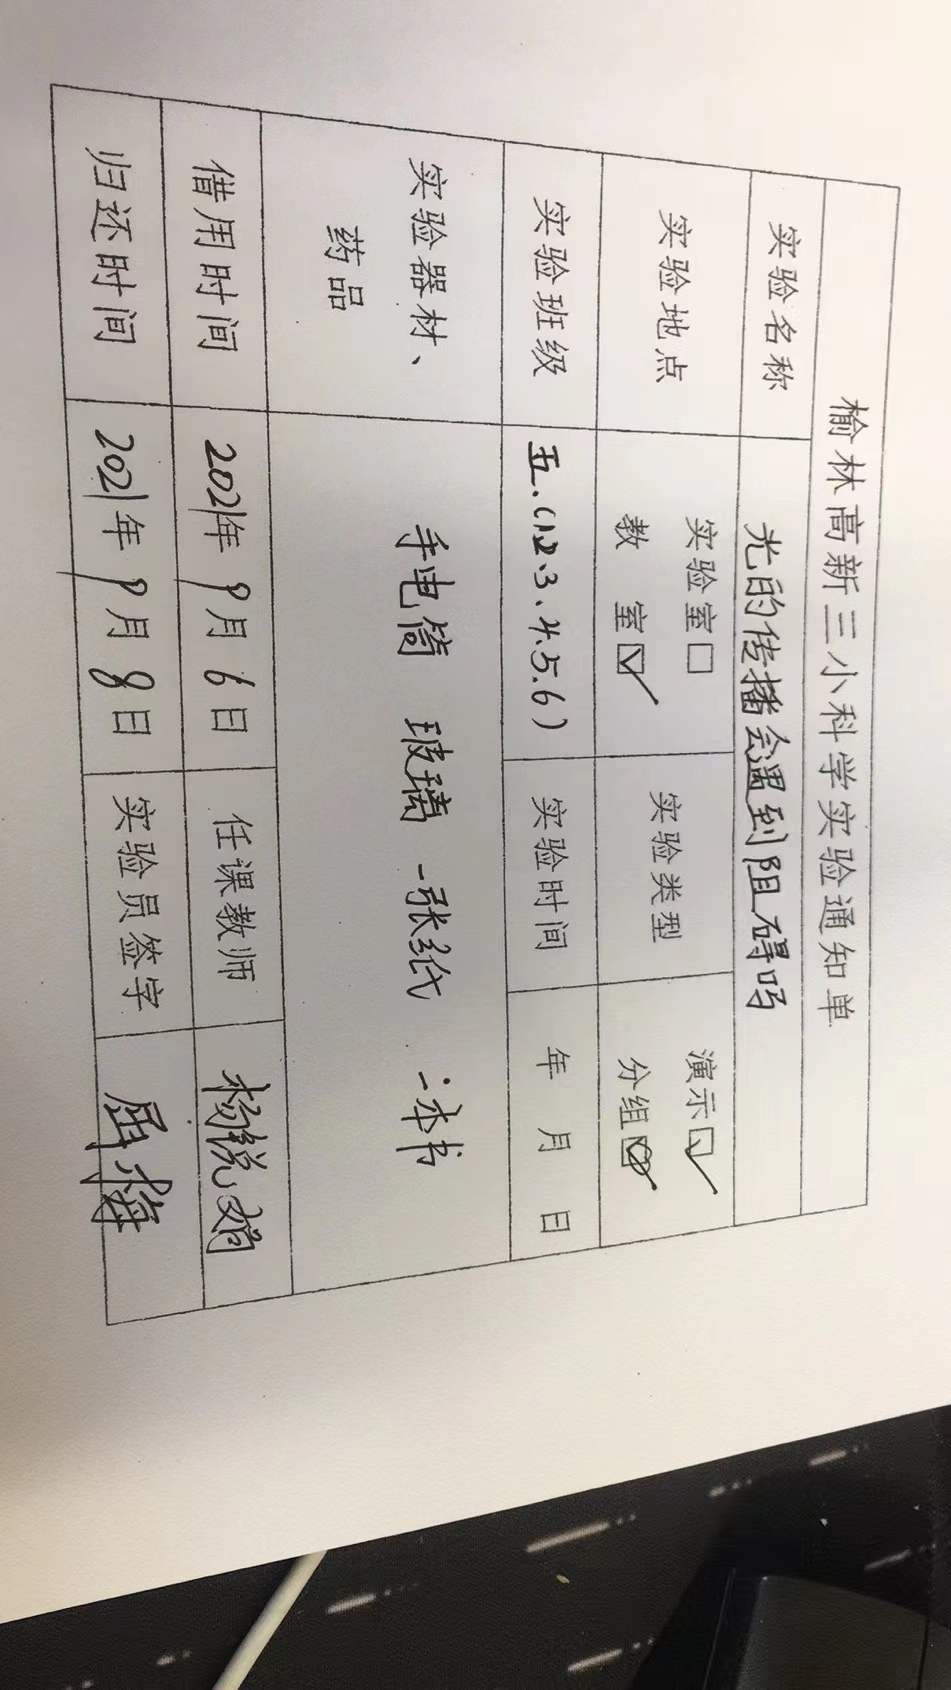 榆林高新三小科学实验通知单
实验名称 光的传播会遇到阻碍吗
实验地点 实验室□ 教 室☑ 实验类型 演示☑ 分组☑
实验班级 五.(1.2.3.4.5.6) 实验时间 年 月 日
实验器材、药品 手电筒 玻璃 一张纸 一本书
借用时间 2021年9月6日 任课教师 杨悦娟
归还时间 2021年9月8日 实验员签字 屈梅